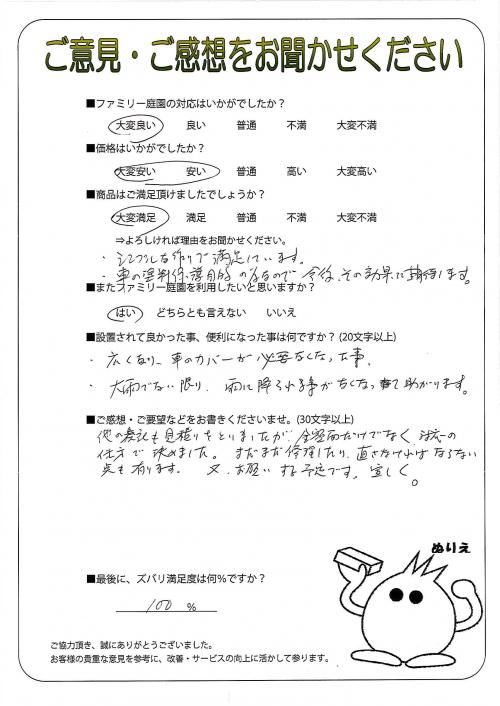 ご意見・ご感想をお聞かせください
■ファミリー庭園の対応はいかがでしたか？
大変良い 良い 普通 不満 大変不満
■価格はいかがでしたか？
大変安い 安い 普通 高い 大変高い
■商品はご満足頂けましたでしょうか？
大変満足 満足 普通 不満 大変不満
⇒よろしければ理由をお聞かせください。
・シンプルな作りで満足しています。
・車の塗料保護目的 なので 今後、その効果に期待します。
■またファミリー庭園を利用したいと思いますか？
はい どちらとも言えない いいえ
■設置されて良かった事、便利になった事は何ですか？(20文字以上)
・広くなり、車のカバーが必要なくなった事。
・大雨でない限り、雨に降られる事がなくなって助かります。
■ご感想・ご要望などをお書きくださいませ。(30文字以上)
他の 見積りをとりましたが、金額面だけでなく、対応の
仕方で決めました。まだまだ修理したり、直さなければならない
点も有ります。又、お願いする予定です。宜しく。
ぬりえ
■最後に、ズバリ満足度は何%ですか？
100 %
ご協力頂き、誠にありがとうございました。
お客様の貴重な意見を参考に、改善・サービスの向上に活かして参ります。